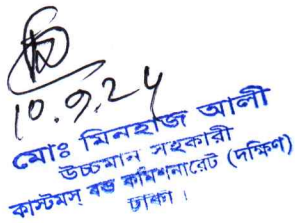 10.9.24
মোঃ মিনহাজ আলী
উচ্চমান সহকারী
কাস্টমস্ বন্ড কমিশনারেট (দক্ষিণ)
ঢাকা।